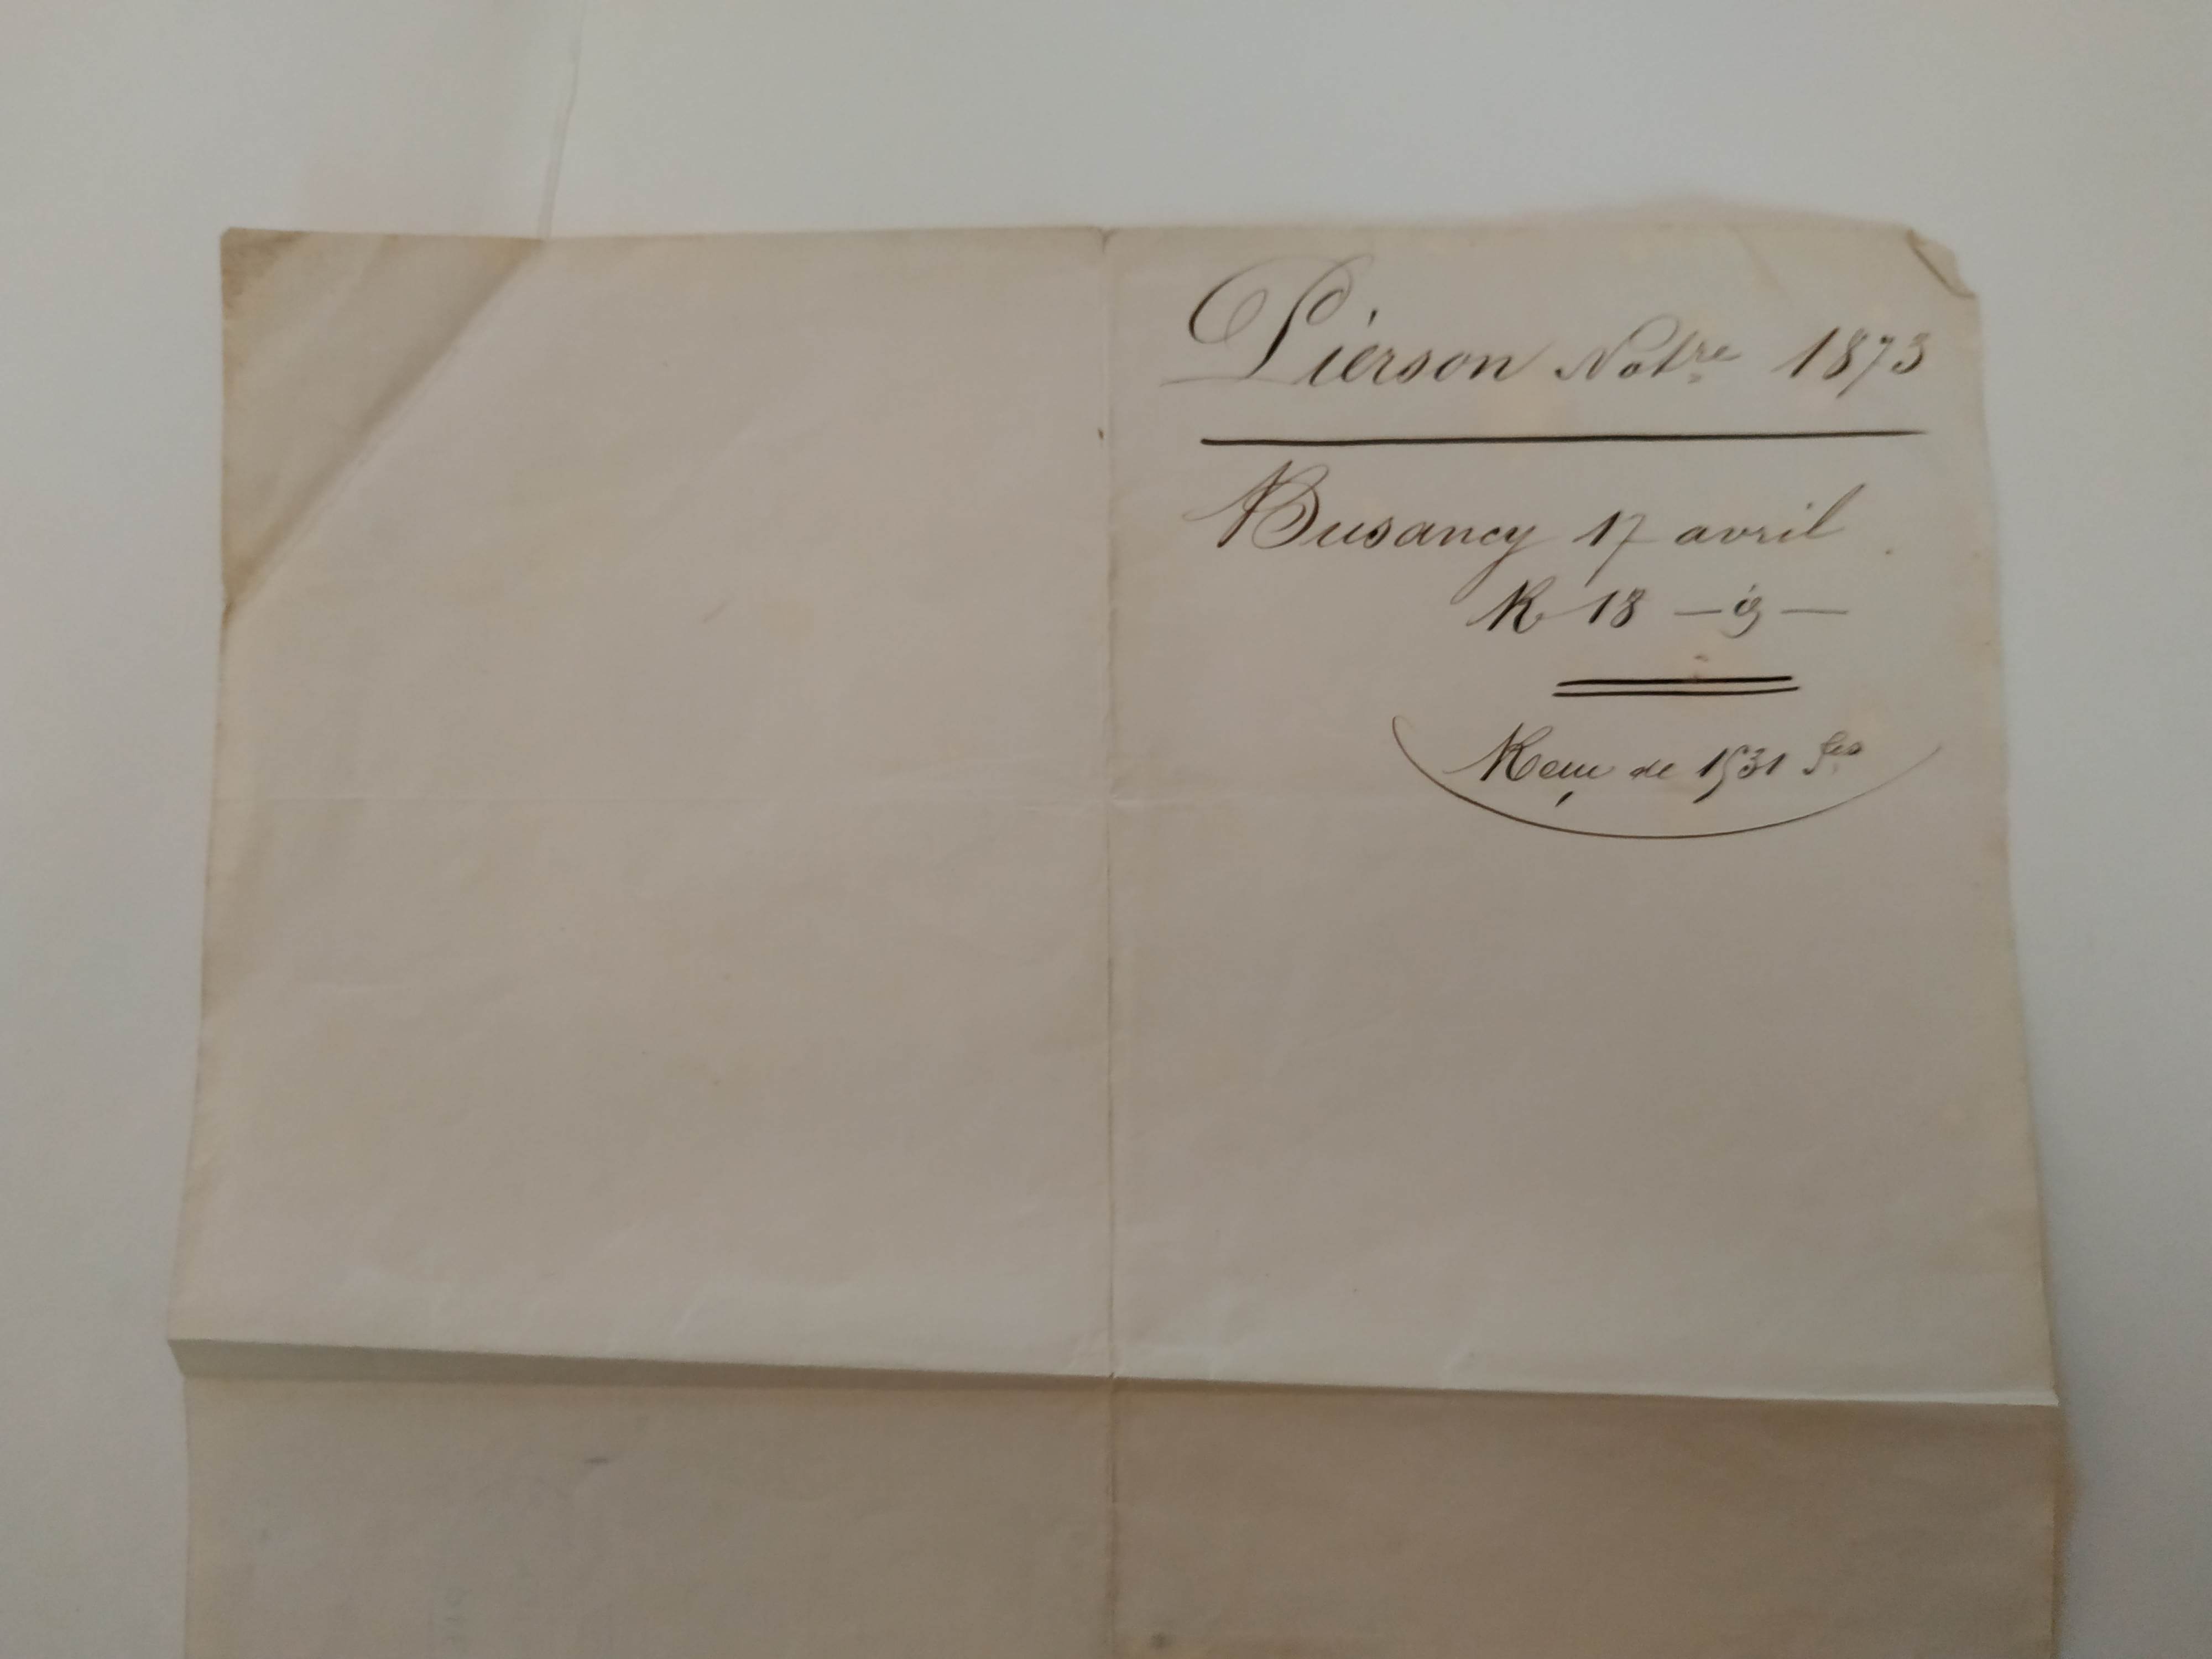 Pierson Not.re 1873
Busancy 17 avril
R 18 — d° —
Reçu de 1531 f.cs